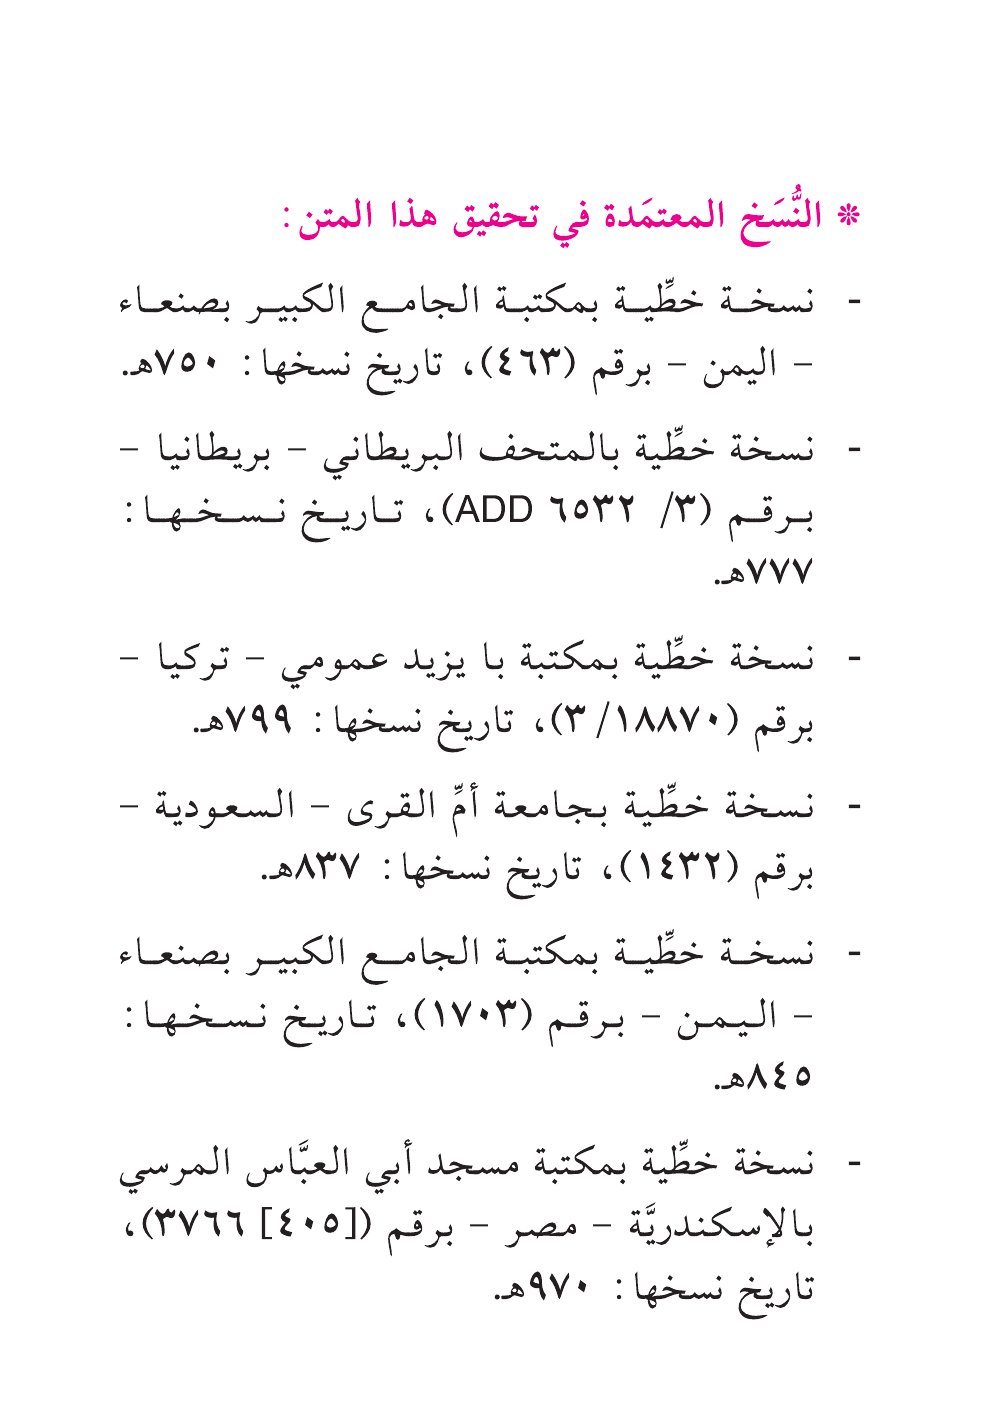 ❊ النُّسَخ المعتمَدة في تحقيق هذا المتن:
- نسخة خطِّية بمكتبة الجامع الكبير بصنعاء
– اليمن – برقم (٤٦٣)، تاريخ نسخها: ٧٥٠هـ.
- نسخة خطِّية بالمتحف البريطاني – بريطانيا –
برقم (٣/ ٦٥٣٢ ADD)، تاريخ نسخها:
٧٧٧هـ.
- نسخة خطِّية بمكتبة با يزيد عمومي – تركيا –
برقم (١٨٨٧٠/ ٣)، تاريخ نسخها: ٧٩٩هـ.
- نسخة خطِّية بجامعة أمِّ القرى – السعودية –
برقم (١٤٣٢)، تاريخ نسخها: ٨٣٧هـ.
- نسخة خطِّية بمكتبة الجامع الكبير بصنعاء
– اليمن – برقم (١٧٠٣)، تاريخ نسخها:
٨٤٥هـ.
- نسخة خطِّية بمكتبة مسجد أبي العبَّاس المرسي
بالإسكندريَّة – مصر – برقم ([٤٠٥] ٣٧٦٦)،
تاريخ نسخها: ٩٧٠هـ.